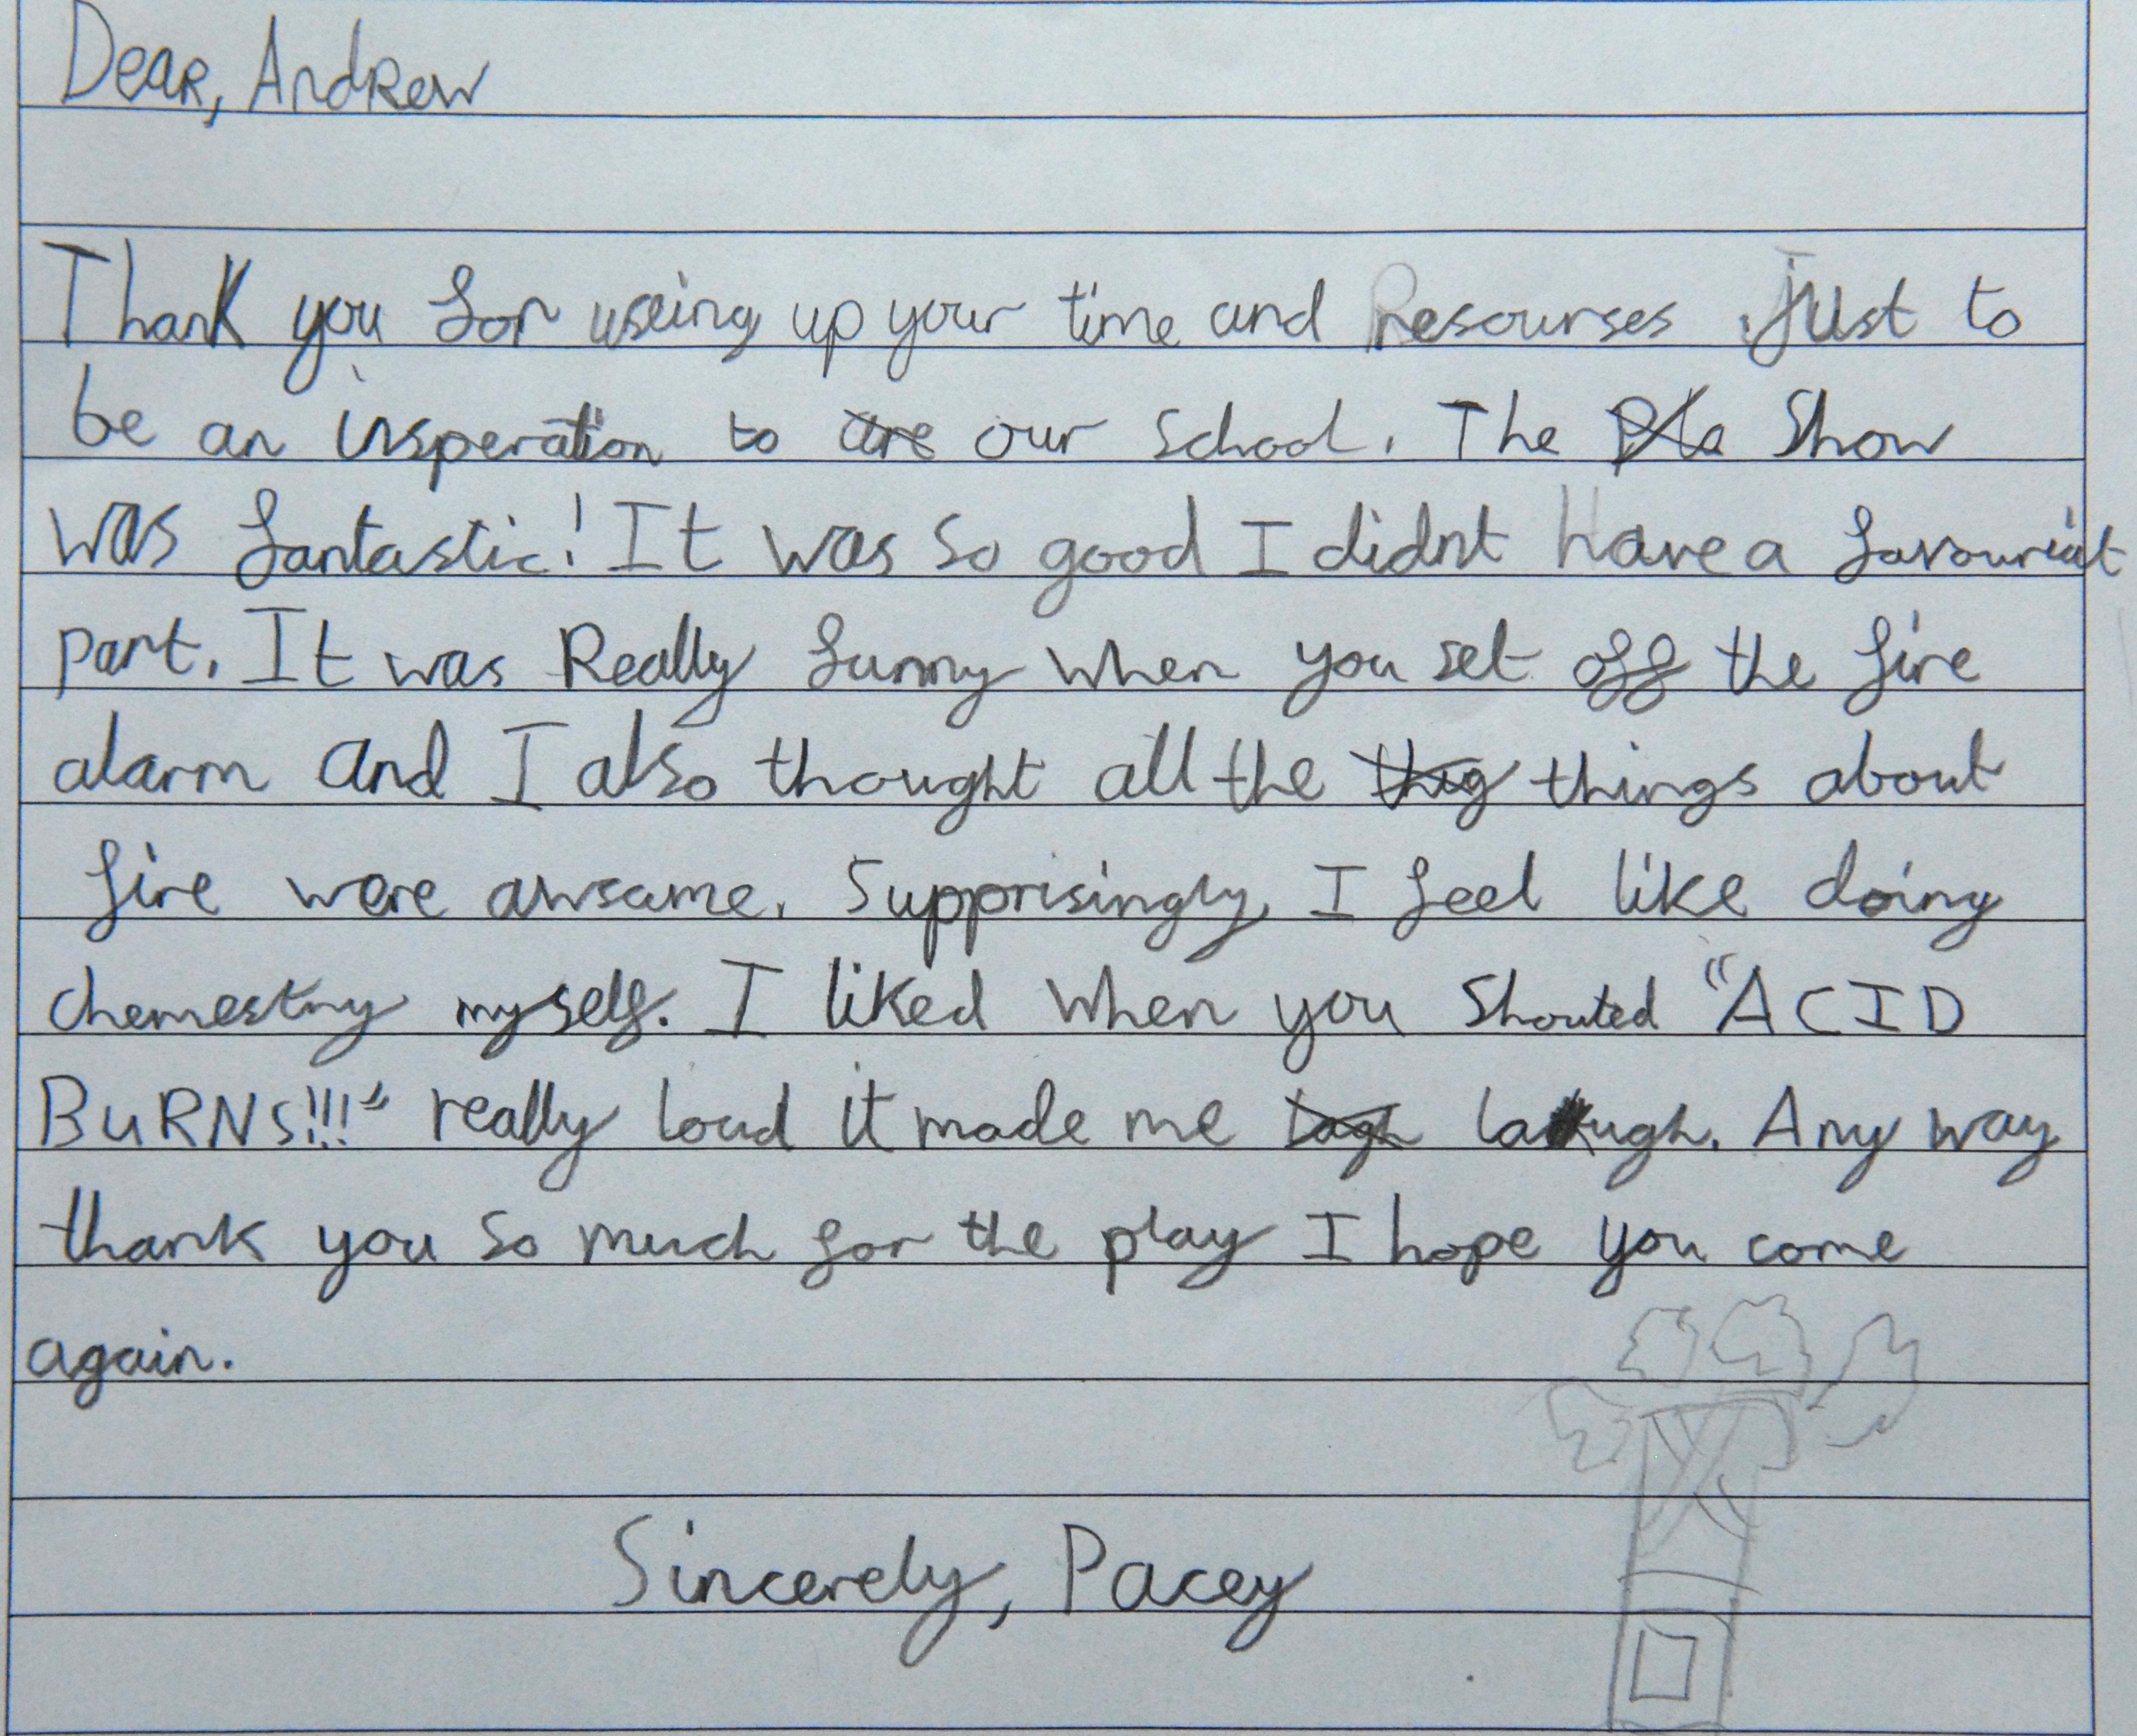 Dear, Andrew
Thank you for using up your time and Resourses just to
be an insperation to are our School. The Pla Show
was fantastic! It was so good I didnt have a favouriat
part. It was Really funny when you set off the fire
alarm and I also thought all the thig things about
fire were awsame. Supprisingly, I feel like doing
chemestry myself. I liked when you Shouted "ACID
BURNS!!!" really loud it made me lagh laugh. Any way
thank you so much for the play I hope you come
again.
Sincerely, Pacey